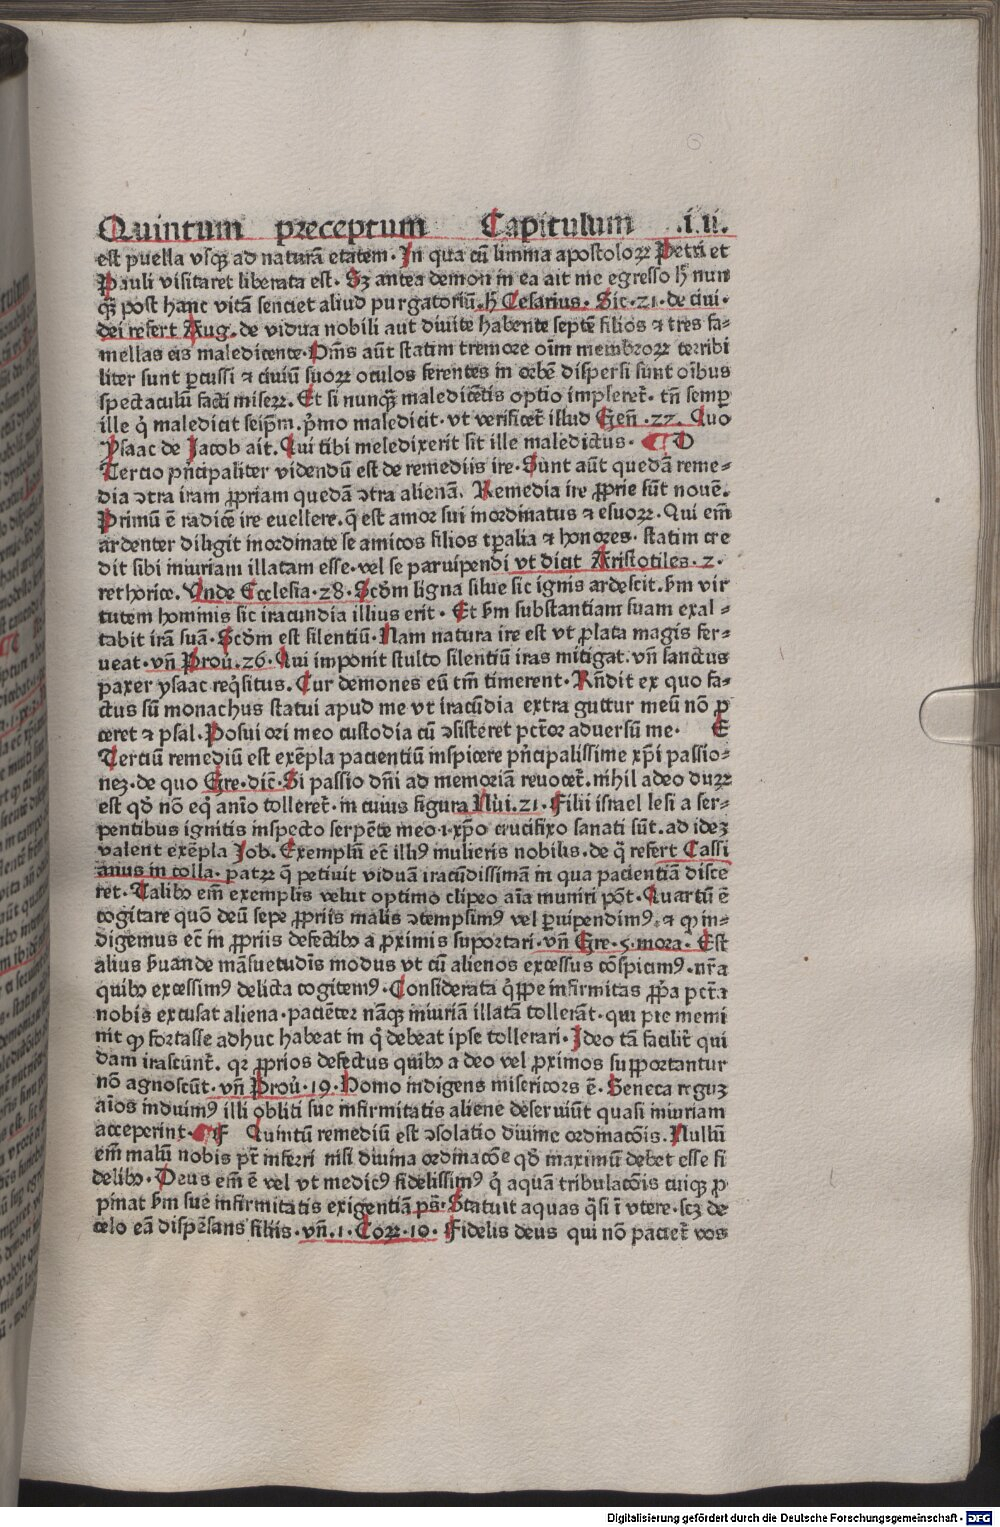 Quintum preceptum Capitulum .lii.
est puella vsqꝫ ad naturā etatem. In qua cū limina apostoloꝝ Petri et
Pauli visitaret liberata est. Sꝫ antea demon in ea ait me egresso hͦ nun
qꝫ post hanc vitā senciet aliud purgatoriū. hͦ Cesarius. Sic. 21. de ciui.
dei refert Aug. de vidua nobili aut diuite habente septē filios ⁊ tres fa⸗
mellas eis maledicente. Om̄s aūt statim tremore oīm membroꝝ terribi
liter sunt ꝑcussi ⁊ ciuiū suoꝝ oculos ferentes in orbē dispersi sunt oībus
spectaculū facti miseꝝ. Et si nunqꝫ maledicētis optio impleret̄. tn̄ semꝑ
ille q̇ maledicit seip̄m. p̄mo maledicit. vt verificet̄ illud Gen̄. 27. Quo
Ysaac de Jacob ait. Qui tibi meledixerit sit ille maledictus. ¶ D
Tercio pn̄cipaliter videndū est de remediis ire. Sunt aūt quedā reme⸗
dia ↄtra iram ꝓpriam quedā ↄtra alienā. Remedia ire ꝓprie sūt nouē.
Primū ē radicē ire euellere. q̄ est amor sui inordinatus ⁊ esuoꝝ. Qui em̄
ardenter diligit inordinate se amicos filios tp̄alia ⁊ honores. statim cre
dit sibi iniuriam illatam esse. vel se paruipendi vt dicit Aristotiles. 2.
rethorice. Vnde Ecclesia. 28. Scd̄m ligna silue sic ignis ardescit. ẜm vir
tutem hominis sic iracundia illius erit. Et ẜm substantiam suam exal⸗
tabit irā suā. Scd̄m est silentiū. Nam natura ire est vt ꝓlata magis fer⸗
ueat. vn̄ Prou̇. 26. Qui imponit stulto silentiū iras mitigat. vn̄ sanctus
paxer ysaac req̇situs. Cur demones eū tm̄ timerent. Rn̄dit ex quo fa⸗
ctus sū monachus statui apud me vt iracūdia extra guttur meū nō ꝓ
ceret ⁊ psal. Posui ori meo custodia cū ↄsisteret pct̄or aduersū me. E
Terciū remediū est exēpla pacientiū inspicere pn̄cipalissime xp̄i passio⸗
neꝫ. de quo Gre. dic̄. Si passio dn̄i ad memoriā reuocet̄. nihil adeo duꝝ
est qd̄ nō eq̇ anīo tolleret̄. in cuius figura Nu̇i. 21. Filii israel lesi a ser⸗
pentibus ignitis inspecto serpēte meo .i. xp̄o crucifixo sanati sūt. ad ideꝫ
valent exēpla Job. Exemplū ec̄ illiꝰ mulieris nobilis. de q̄ refert Cassi
anus in colla. patꝝ q̄ petiuit viduā iracūdissimā in qua pacientiā disce
ret. Talibꝰ em̄ exemplis velut optimo clipeo aīa muniri pōt. Quartū ē
cogitare quō deū sepe ꝓpriis malis ↄtempsimꝰ vel ꝑuipendimꝰ. ⁊ ꝙ in⸗
digemus ec̄ in ꝓpriis defectibꝰ a ꝓximis suportari. vn̄ Gre. 5. mora. Est
alius ẜuande māsuetudīs modus vt cū alienos excessus cōspicimꝰ. nr̄a
quibꝰ excessimꝰ delicta cogitemꝰ. Considerata q̇ꝓe infirmitas ꝓp̄a pct̄a
nobis excusat aliena. paciēter nāqꝫ iniuriā illatā tollerāt. qui pie memi
nit ꝙ fortasse adhuc habeat in q̇ debeat ipse tollerari. Ideo tā facilit̄ qui
dam irascūnt̄. qꝛ ꝓprios defectus quibꝰ a deo vel ꝓximos supportantur
nō agnoscūt. vn̄ Prou̇. 19. Homo indigens misericors ē. Seneca reguꝫ
aīos induimꝰ illi obliti sue infirmitatis aliene deseruiūt quasi iniuriam
acceperint. ¶ F Quintū remediū est ↄsolatio diuine ordinacōis. Nullū
em̄ malū nobis pt̄ inferri nisi diuina ordinacōe qd̄ maximū debet esse fi
delibꝰ. Deus em̄ ē vel vt medicꝰ fidelissimꝰ q̇ aquā tribulacōis cuiqꝫ ꝓ
pinat ẜm sue infirmitatis exigentiā. ps̄. Statuit aquas q̄si ī vtere. scꝫ de
celo eā dispēsans filiis. vn̄. 1. Coꝝ. 10. Fidelis deus qui nō paciet̄ vos
Digitalisierung gefördert durch die Deutsche Forschungsgemeinschaft - DFG